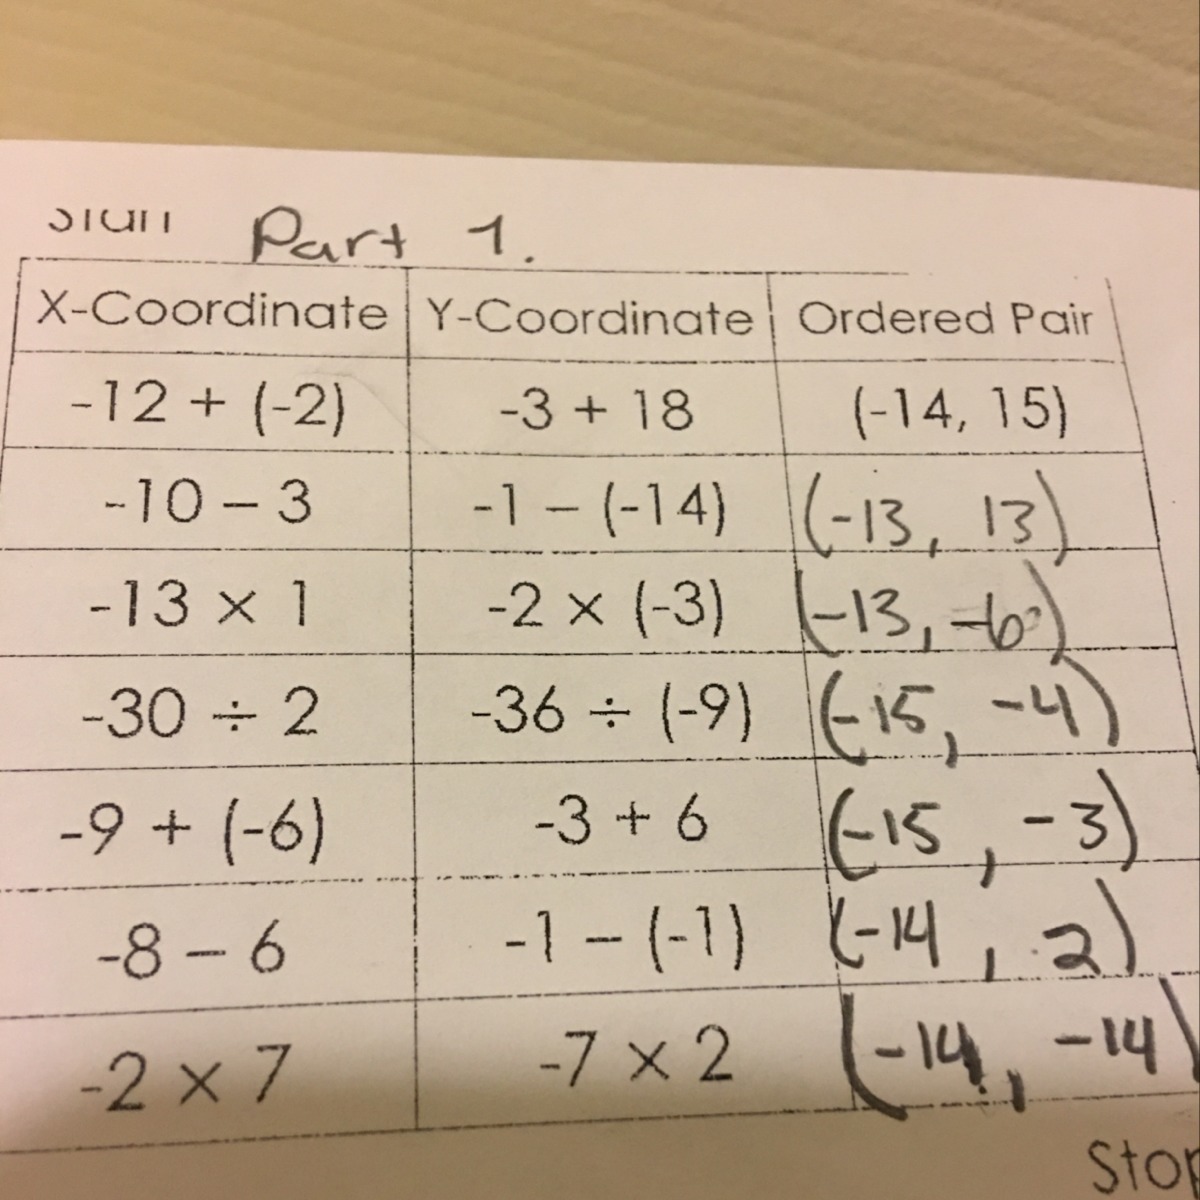 Start Part 1.
X-Coordinate Y-Coordinate Ordered Pair
-12 + (-2) -3 + 18 (-14, 15)
-10 – 3 -1 – (-14) (-13, 13)
-13 × 1 -2 × (-3) (-13, -6)
-30 ÷ 2 -36 ÷ (-9) (-15, -4)
-9 + (-6) -3 + 6 (-15, -3)
-8 – 6 -1 – (-1) (-14, 2)
-2 × 7 -7 × 2 (-14, -14)
Stop